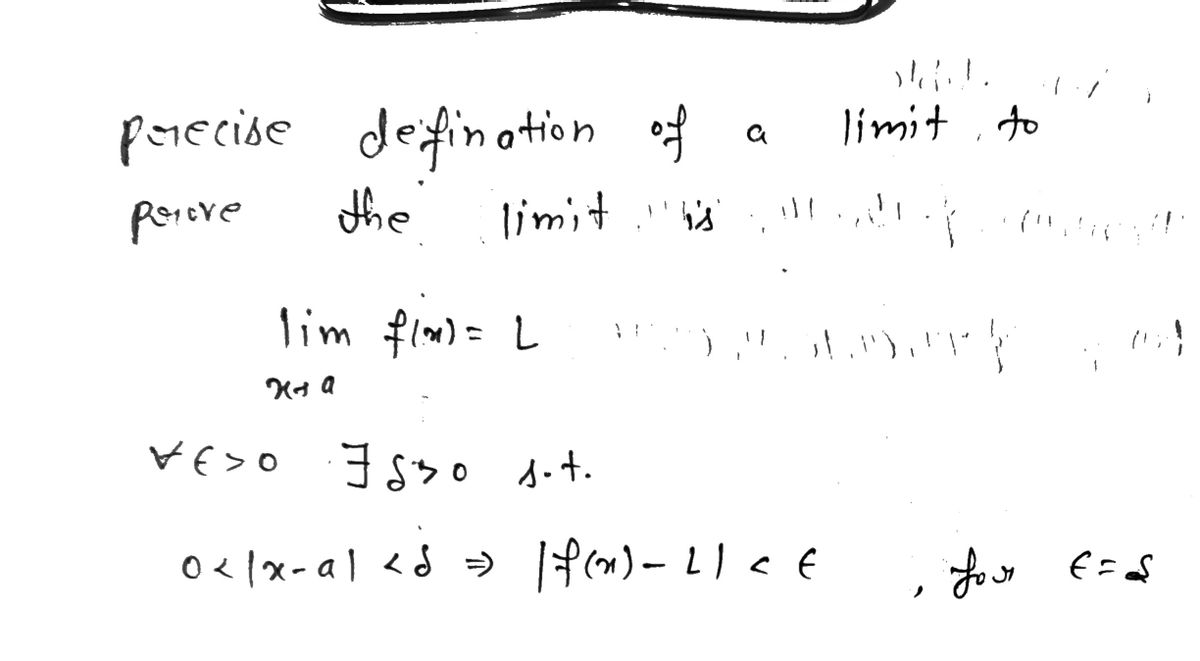 precise defination of a limit, to
prove the limit is
lim f(x) = L
x→a
∀ ϵ > 0 ∃ δ > 0 s.t.
0 < |x - a| < δ ⇒ |f(x) - L| < ϵ , for ϵ = δ